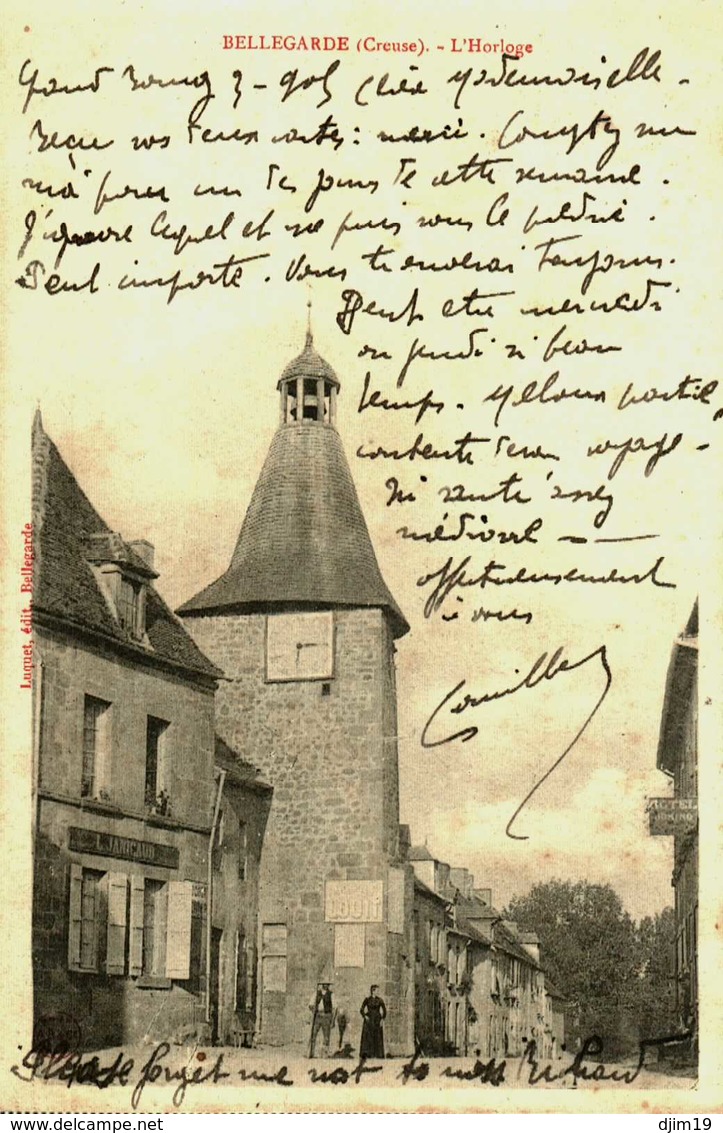 BELLEGARDE (Creuse). - L'Horloge
chère Mademoiselle -
Reçu vos deux cartes : merci. Comptez sur
moi pour un des jours de cette semaine.
J'ignore lequel et ne puis vous le prédire.
Peut importe. Vous trouverai toujours.
Peut être mercredi
ou jeudi si beau
temps. Yellow partie,
contente de son voyage -
Ni santé assez
médiocre - -
affectueusement
à vous
Camille
Luquet, édit. Bellegarde
L. JARICAUD
HOTEL
Please forget me not to miss Richard
djim19